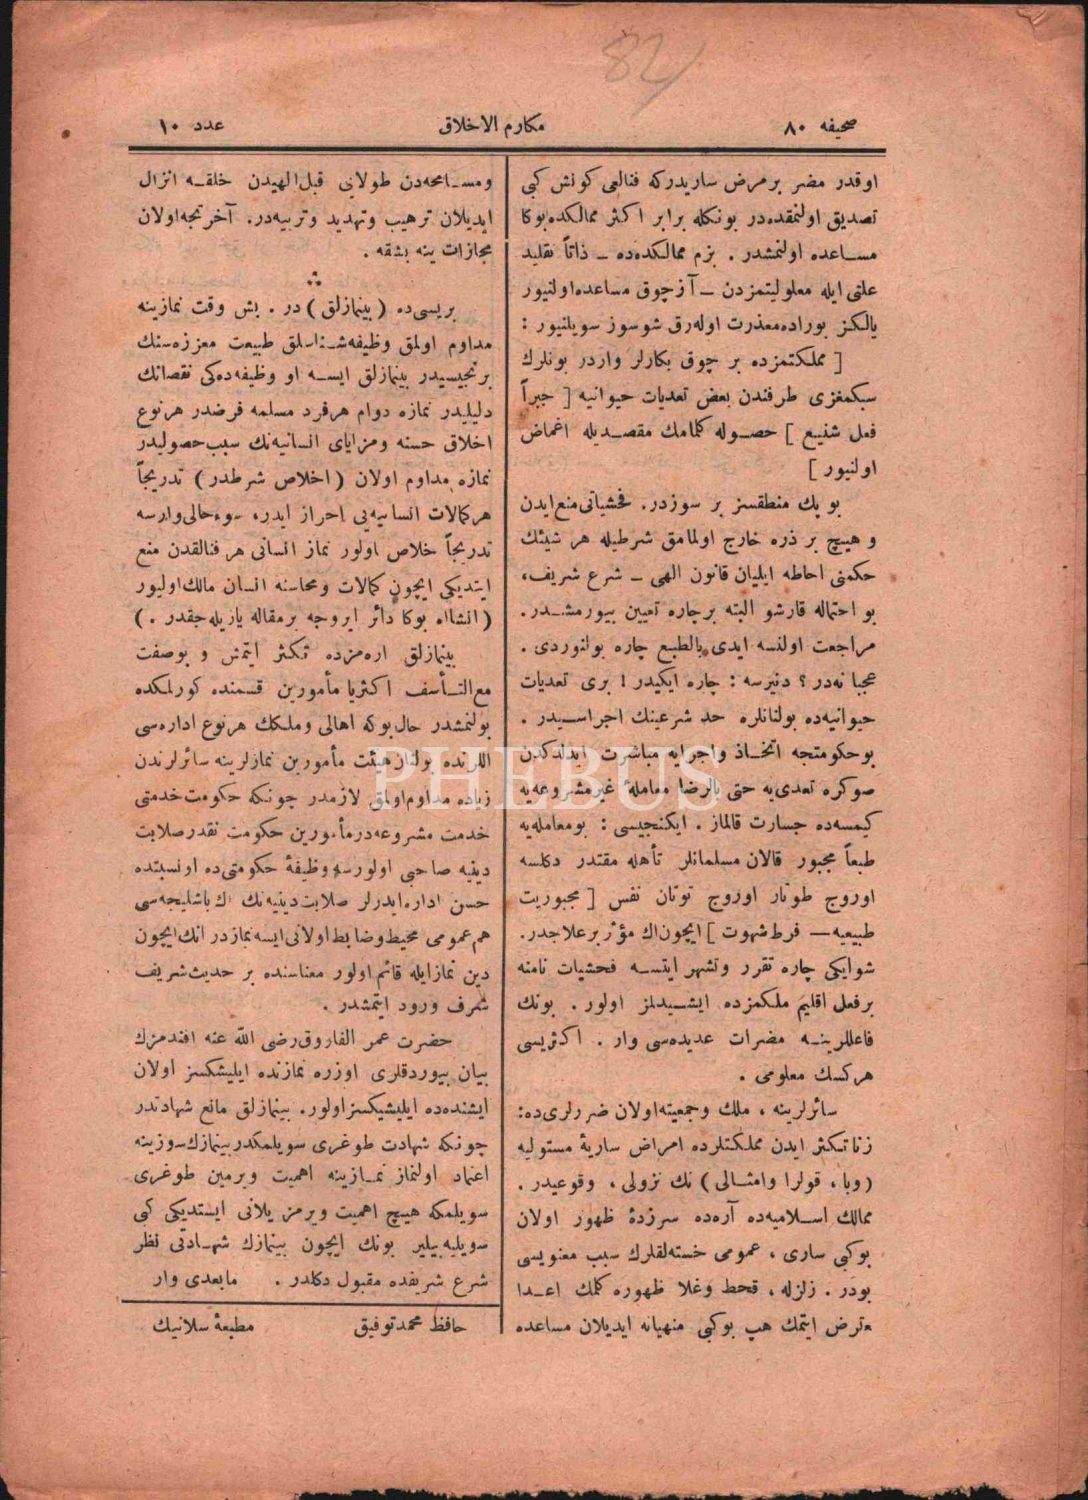 82
صحیفه ۸۰
مکارم الاخلاق
عدد ۱۰
اوقدر مضر برمرض ساریدرکه فنالغی کونش کبی
تصدیق اولنمقده‌در بونکله برابر اکثر ممالکده‌بوکا
مساعده اولنمشدر . بزم ممالکده‌ده ــ ذاتاً تقلید
علتی ایله معلولیتمزدن ــ آزچوق مساعده‌اولنیور
یالکز بوراده‌معذرت اوله‌رق شوسوز سویلنیور :
[ مملکتمزده بر چوق بکارلر واردر بونلرك
سبکمغزی طرفندن بعض تعدیات حیوانیه [ جبراً
فعل شنیع ] حصوله کلمامك مقصدیله اغماض
اولنیور ]
بو پك منطقسز بر سوزدر. فحشیاتی‌منع‌ایدن
و هیچ بر ذره خارج اولمامق شرطیله هر شیئك
حکمنی احاطه ایلیان قانون الهی ــ شرع شریف،
بو احتماله قارشو البته برچاره تعیین بیورمشدر.
مراجعت اولنسه ایدی بالطبع چاره بولنوردی .
عجبا نه‌در ؟ دنیرسه : چاره ایکیدر ! بری تعدیات
حیوانیه‌ده بولنانلره حد شرعینك اجراسیدر .
بوحکومتجه اتخاذ واجرایه مباشرت ایدلدکدن
صوکره تعدی‌یه حتی بالرضا معاملهٔ غیرمشروعه‌یه
کیمسه‌ده جسارت قالماز . ایکنجیسی : بومعامله‌یه
طبعاً مجبور قالان مسلمانلر تأهله مقتدر دکلسه
اوروج طوتار اوروج توتان نفس [ مجبوریت
طبیعیه— فرط شهوت ] ایچون‌اك مؤثر برعلاجدر.
شوایکی چاره تقرر وتشهر ایتسه فحشیات نامنه
برفعل اقلیم ملکمزده ایشیدلمز اولور . بونك
فاعللرینه مضرات عدیده‌سی وار . اکثریسی
هرکسك معلومی .
سائرلرینه ، ملك وجمعیته‌اولان ضررلری‌ده:
زناتکثر ایدن مملکتلرده امراض ساریهٔ مستولیه
(وبا ، قولرا وامثالی) نك نزولی ، وقوعیدر .
ممالك اسلامیه‌ده آره‌ده سرزدهٔ ظهور اولان
بوکبی ساری ، عمومی خسته‌لقلرك سبب معنویسی
بودر . زلزله ، قحط وغلا ظهوره کلمك اعدا
تعرض ایتمك هپ بوکبی منهیانه ایدیلان مساعده
ومسامحه‌دن طولایی قبل‌الهیدن خلقه انزال
ایدیلان ترهیب وتهدید وتربیه‌در. آخرتجه‌اولان
مجازات ینه بشقه .
بریسی‌ده (بینمازلق) در . بش وقت نمازینه
مداوم اولمق وظیفه‌شناسلق طبیعت معززه‌سنك
برنجیسیدر بینمازلق ایسه او وظیفه‌ده‌کی نقصانك
دلیلیدر نمازه دوام هرفرد مسلمه فرضدر هرنوع
اخلاق حسنه ومزایای انسانیه‌نك سبب‌حصولیدر
نمازه مداوم اولان (اخلاص شرطدر) تدریجاً
هرکمالات انسانیه‌یی احراز ایدر، سوءحالی‌وارسه
تدریجاً خلاص اولور نماز انسانی هرفنالقدن منع
ایتدیکی ایچون کمالات ومحاسنه انسان مالك‌اولیور
(انشاالله بوکا دائر ایروجه برمقاله یازیله‌جقدر .)
بینمازلق اره‌مزده تکثر ایتمش و بوصفت
مع‌التأسف اکثریا مأمورین قسمنده کورلمکده
بولنمشدر حال‌بوکه اهالی وملکك هرنوع اداره‌سی
اللرنده بولنان‌هیئت مأمورین نمازلرینه سائرلرندن
زیاده مداوم‌اولمق لازمدر چونکه حکومت‌خدمتی
خدمت مشروعه‌درمأمورین حکومت نقدرصلابت
دینیه صاحبی اولورسه وظیفهٔ حکومتی‌ده اونسبتده
حسن اداره‌ایدرلر صلابت‌دینیه‌نك اك‌باشلیجه‌سی
هم‌عمومی محیط‌وضابط‌اولانی‌ایسه‌نمازدر انك‌ایچون
دین نمازایله قائم‌اولور معناسنده بر حدیث‌شریف
شرف ورود ایتمشدر .
حضرت عمر الفاروق‌رضی الله عنه افندمزك
بیان بیوردقلری اوزره نمازنده ایلیشکسز اولان
ایشنده‌ده ایلیشیکسزاولور. بینمازلق مانع شهادتدر
چونکه شهادت طوغری سویلمکدربینمازك‌سوزینه
اعتماد اولنماز نمازینه اهمیت ویرمین طوغری
سویلمکه هیچ اهمیت ویرمز یلانی ایستدیکی کبی
سویلیه‌بیلیر بونك ایچون بینمازك شهادتی نظر
شرع شریفده مقبول دکلدر . مابعدی وار
حافظ محمدتوفیق
مطبعهٔ سلانیك
PHEBUS